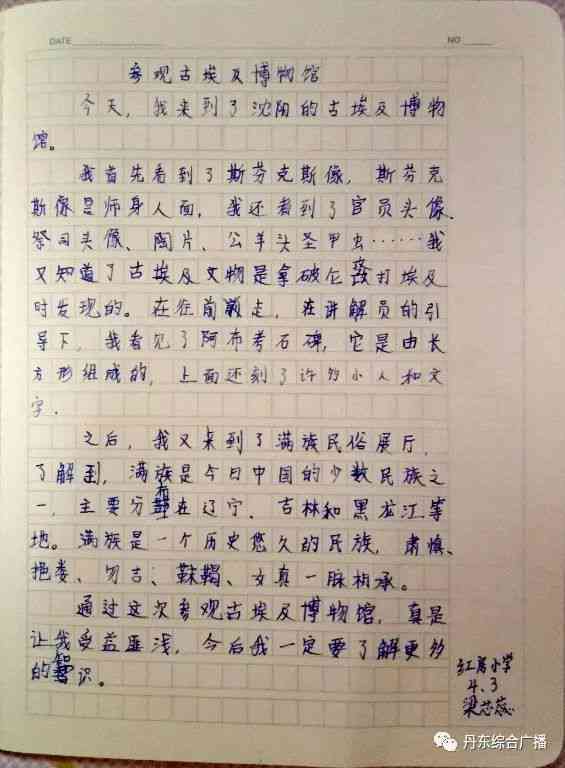 DATE
NO
参观古埃及博物馆
今天，我来到了沈阳的古埃及博物
馆。
我首先看到了斯芬克斯像，斯芬克
斯像是师身人面，我还看到了官员头像、
祭司头像、陶片、公羊头圣甲虫……我
又知道了古埃及文物是拿破仑攻打埃及
时发现的。在往前走，在讲解员的引
导下，我看见了阿布考石碑，它是由长
方形组成的，上面还刻了许多小人和文
字.
之后，我又来到了满族民俗展厅，
了解到，满族是今日中国的少数民族之
一，主要分布在辽宁、吉林和黑龙江等
地。满族是一个历史悠久的民族，肃慎、
挹娄、勿吉、靺鞨、女真一脉相承。
通过这次参观古埃及博物馆，真是
让我受益匪浅，今后我一定要了解更多
的知识。
红房小学
4.3
梁芯蕊
丹东综合广播